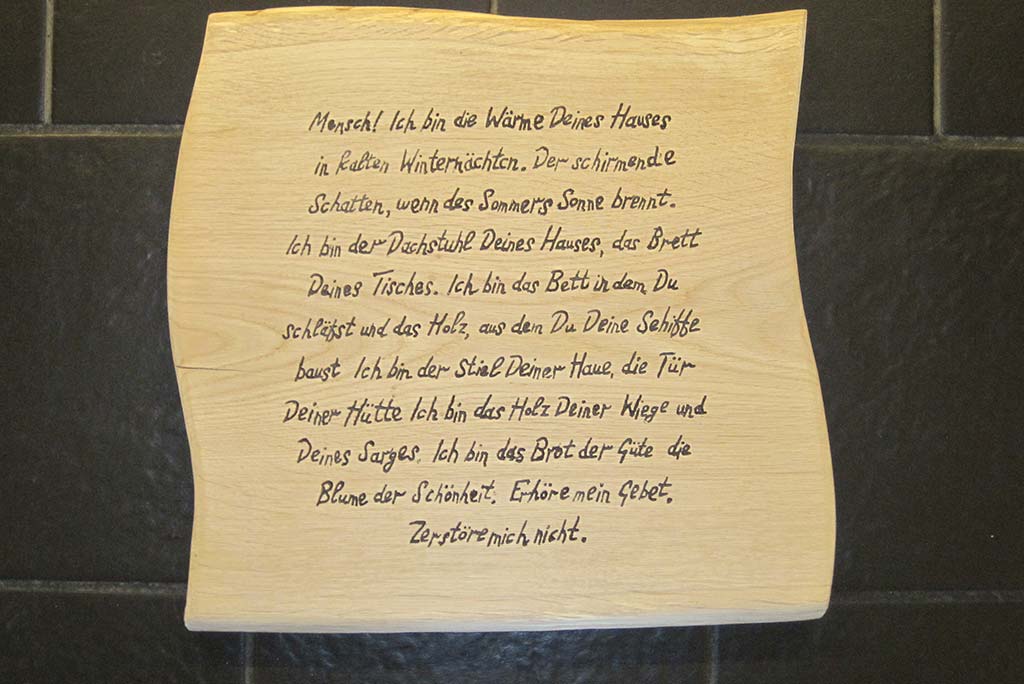 Mensch! Ich bin die Wärme Deines Hauses
in kalten Winternächten. Der schirmende
Schatten, wenn des Sommers Sonne brennt.
Ich bin der Dachstuhl Deines Hauses, das Brett
Deines Tisches. Ich bin das Bett in dem Du
schläfst und das Holz, aus dem Du Deine Schiffe
baust Ich bin der Stiel Deiner Haue, die Tür
Deiner Hütte Ich bin das Holz Deiner Wiege und
Deines Sarges. Ich bin das Brot der Güte die
Blume der Schönheit. Erhöre mein Gebet.
Zerstöre mich nicht.